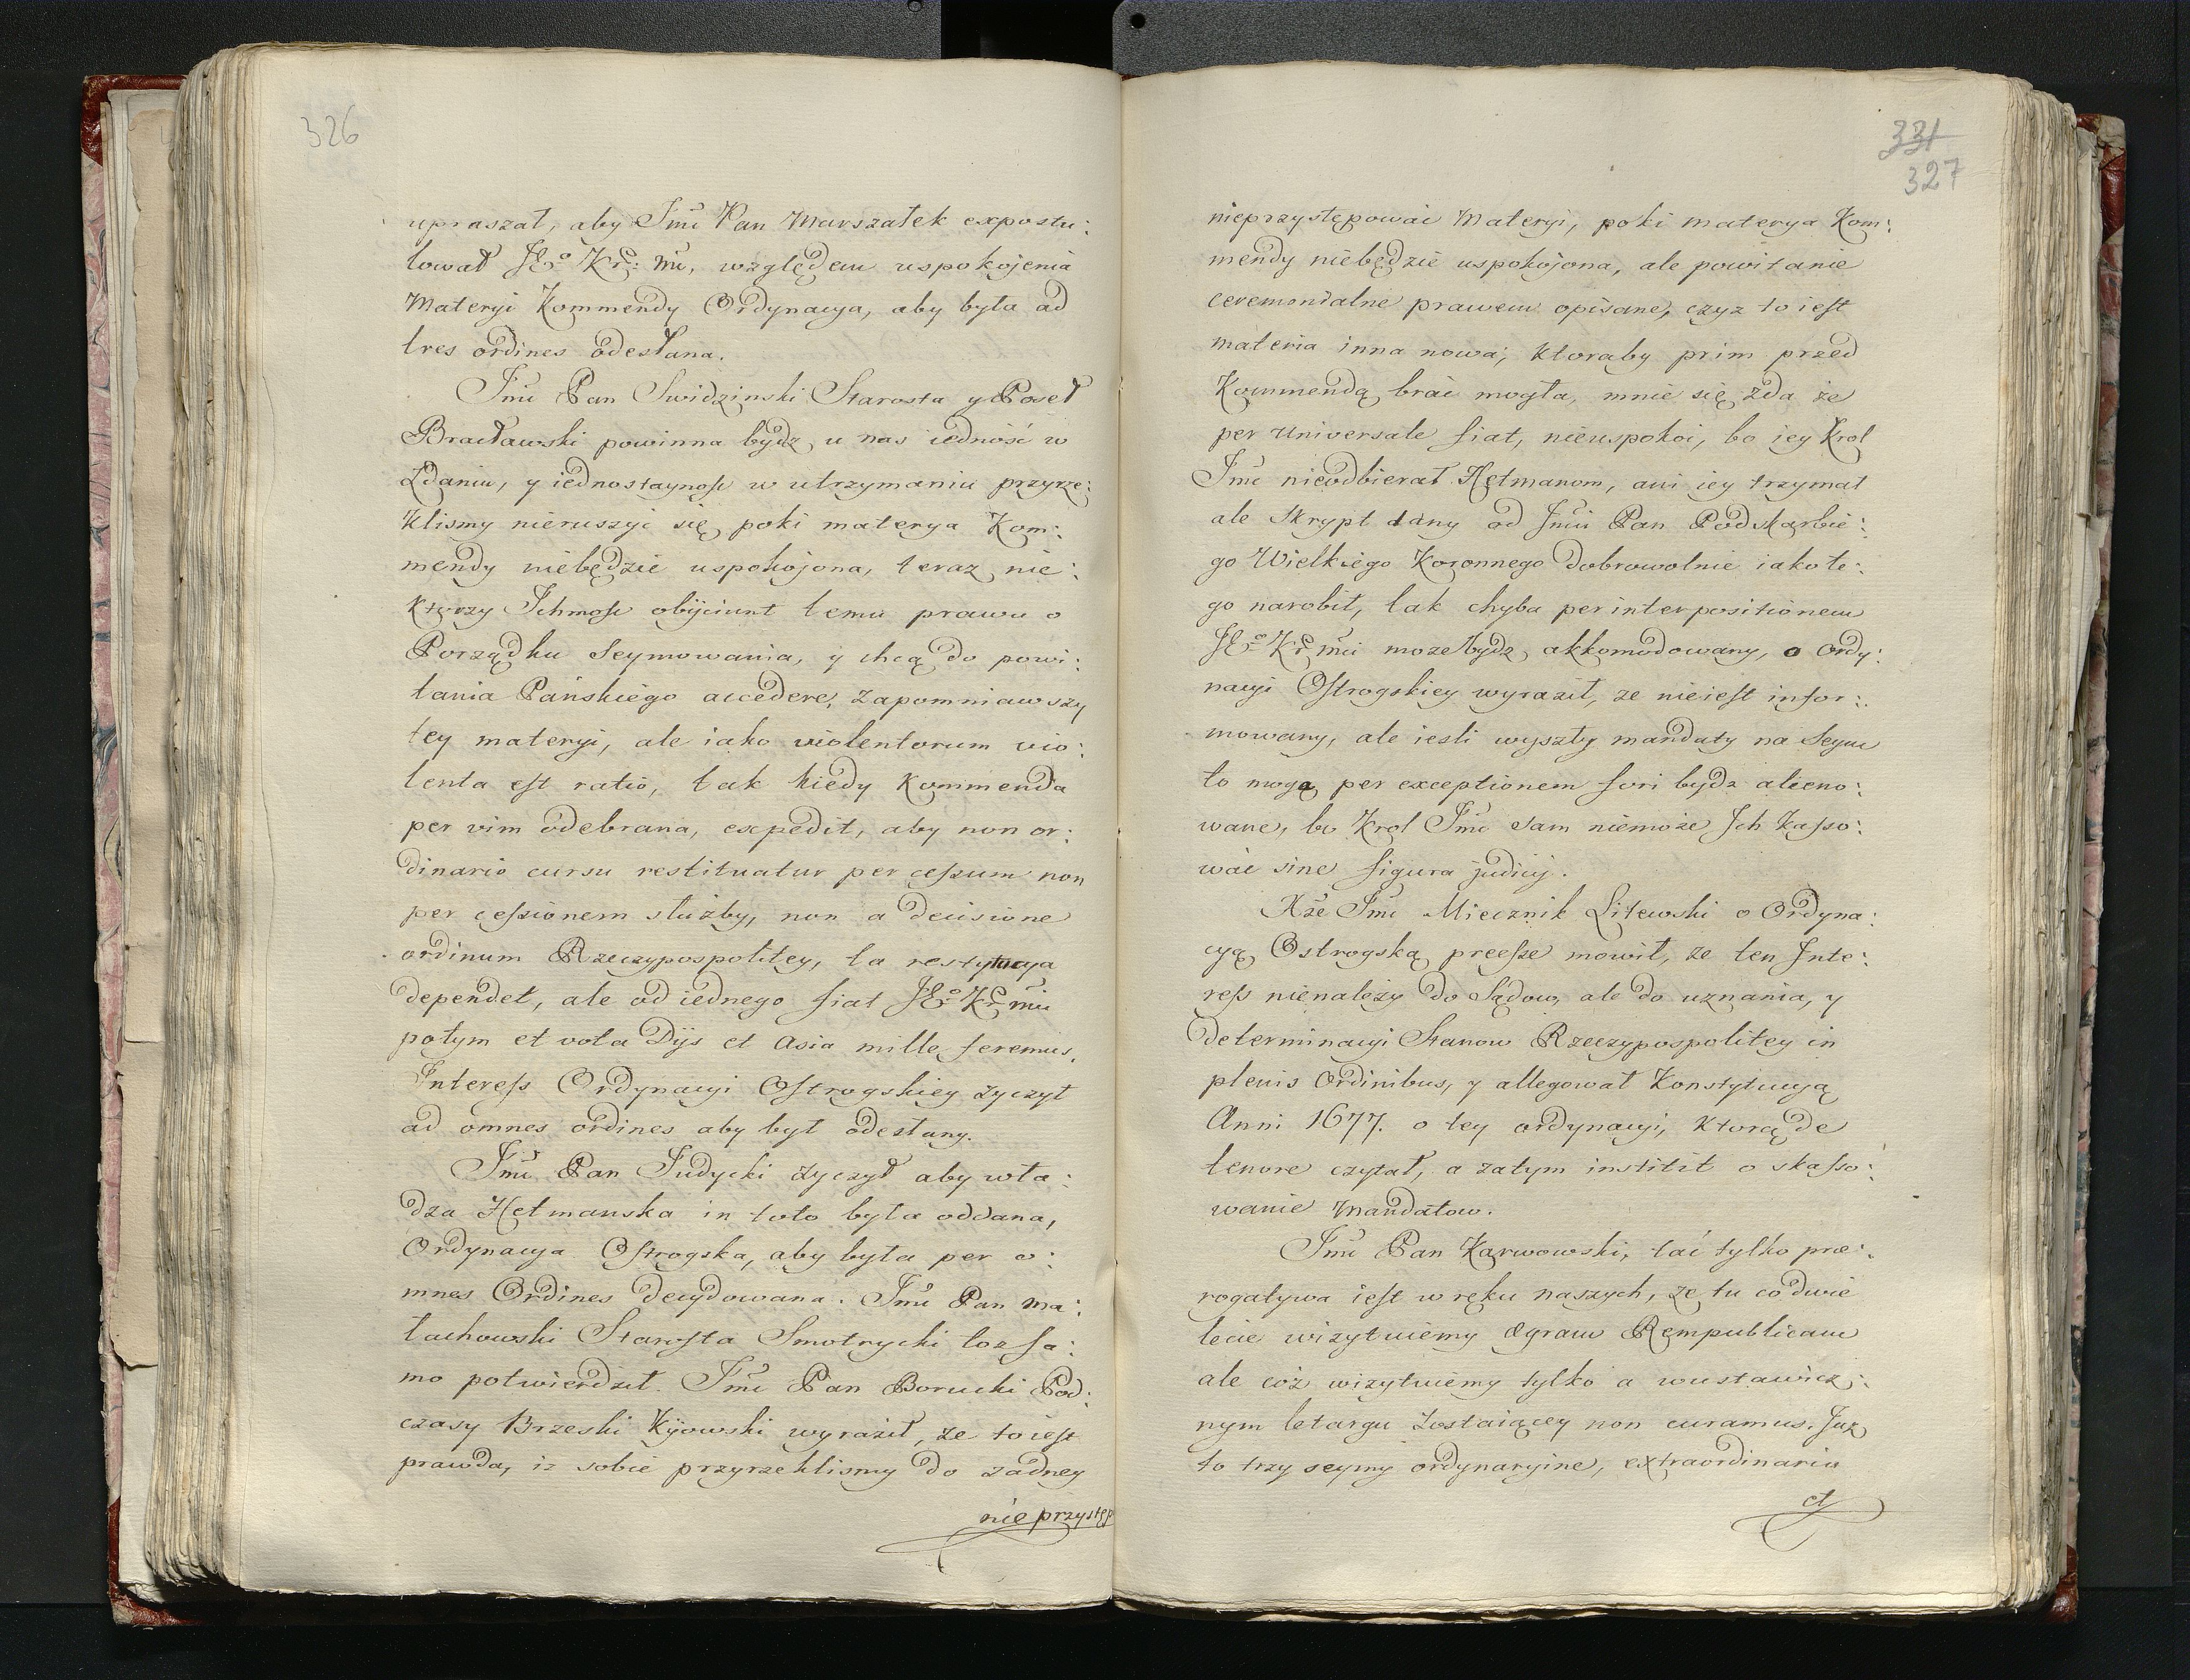 326
upraszał, aby Jmć Pan Marszałek expostu:
lował JEgo Krl: Mći, względem uspokojenia
Materyi Kommendy Ordynacya, aby była ad
tres ordines odesłana.
Jmć Pan Swidzinski Starosta y Poseł
Bracławski powinna bydz u nas iedność w
Zdaniu, y iednostaynosc w utrzymaniu przyrze:
klismy nieruszyć się poki materya Kom:
mendy niebędzie uspokojona, teraz nie:
ktorzy Ichmosc obijciunt temu prawu o
Porządku Seymowania, y chcą do powi:
tania Pańskiego accedere, zapomniawszy
tey materyi, ale iako violentorum vio:
lenta est ratio, tak kiedy Kommenda
per vim odebrana, expedit, aby non or:
dinario cursu restituatur per cessum non
per cessionem służby, non a decisione
ordinum Rzeczypospolitey, ta restytucya
dependet, ale od iednego fiat JEgo Kr Mći
potym et vota Dijs et Asia mille feremus.
Interess Ordynacyi Ostrogskiey życzył
ad omnes ordines aby był odesłany.
Jmć Pan Judycki życzył aby wła:
dza Hetmanska in toto była oddana,
Ordynacya Ostrogska, aby była per o:
mnes Ordines decydowana. Jmć Pan Ma:
łachowski Starosta Smotrycki toz sa:
mo potwierdził. Jmć Pan Borucki Pod:
czasy Brzeski Kijowski wyraził, że to iest
prawda, iz sobie przyrzeklismy do zadney
nie przystęp
331
327
nieprzystępować Materyi, poki materya Kom:
mendy niebędzie uspokojona, ale powitanie
ceremonialne prawem opisane, czyz to iest
materia inna nowa, ktoraby prim przed
Kommendą brać mogła, mnie się zda że
per universale fiat, nieuspokoi, bo iey Krol
Jmć nieodbierał Hetmanom, ani iey trzymał
ale Skrypt dany od Jmći Pan Podskarbie:
go Wielkiego Koronnego dobrowolnie iako te:
go narobił, tak chyba per interpositionem
JEgo Kr Mći moze bydz akkomodowany, o Ordy:
nacyi Ostrogskiey wyraził, ze nieiest infor:
mowany, ale iesli wyszły mandaty na Seym
to mogą per exceptionem fori bydz alieno:
wane, bo Krol Jmć sam niemoże Ich kasso:
wać sine figura judicij.
Xże Jmć Miecznik Litewski o Ordyna:
cyą Ostrogską preesse mowił, ze ten Inte:
ress nienależy do Sądow, ale do uznania, y
determinacyi Stanow Rzeczypospolitey in
plenis Ordinibus, y allegował Konstytucyą
Anni 1677. o tey ordynacyi, ktorą de
tenore czytał, a zatym institit o skasso:
wanie Mandatow.
Jmć Pan Karwowski, tać tylko præ:
rogatywa iest w ręku naszych, ze tu co dwie
lecie wizytuiemy ægram Rempublicam
ale coż wizytuiemy tylko a wustawicz:
nym letargu zostaiącey non curamus. Juz
to trzy seymy ordynaryine, extraordinaria
et